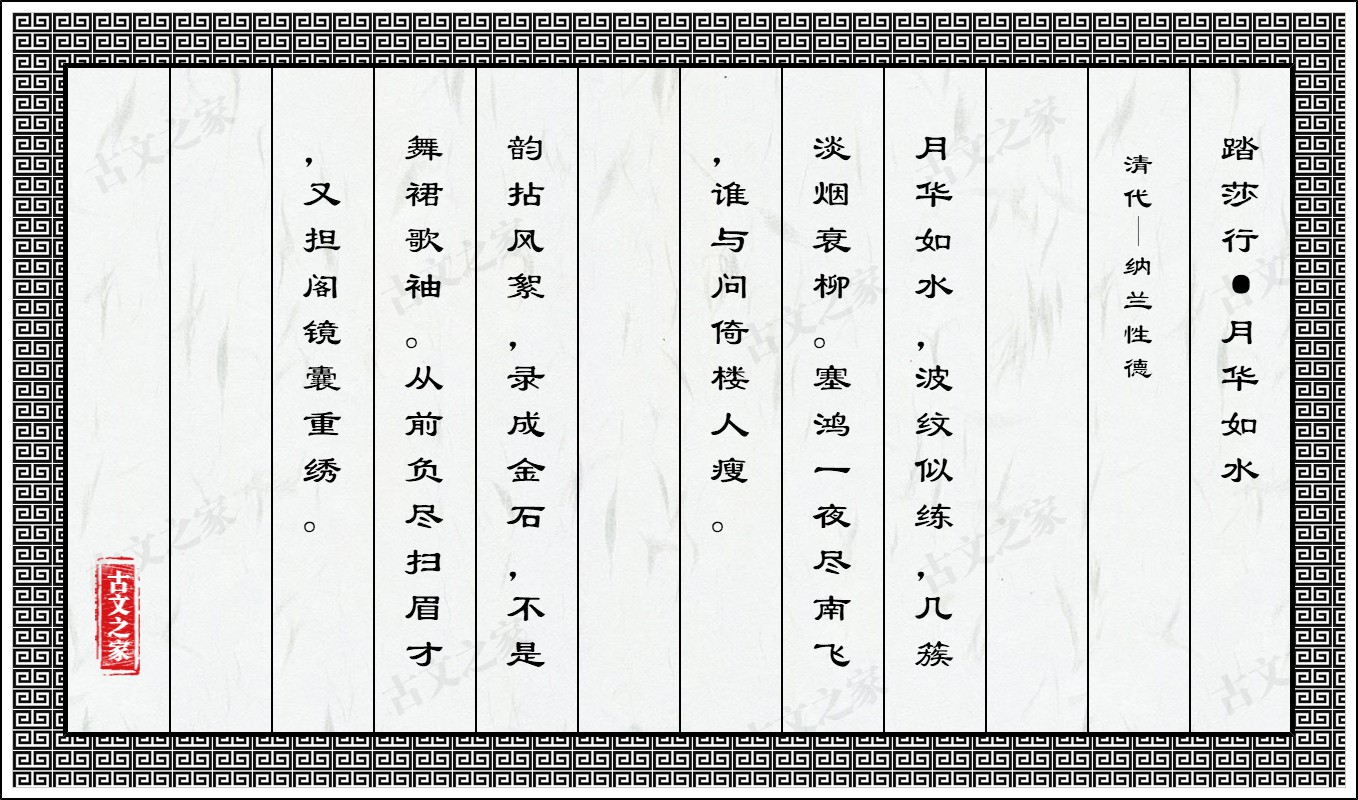 踏莎行●月华如水
清代—纳兰性德
月华如水，波纹似练，几簇
淡烟衰柳。塞鸿一夜尽南飞
，谁与问倚楼人瘦。
韵拈风絮，录成金石，不是
舞裙歌袖。从前负尽扫眉才
，又担阁镜囊重绣。
古文之家